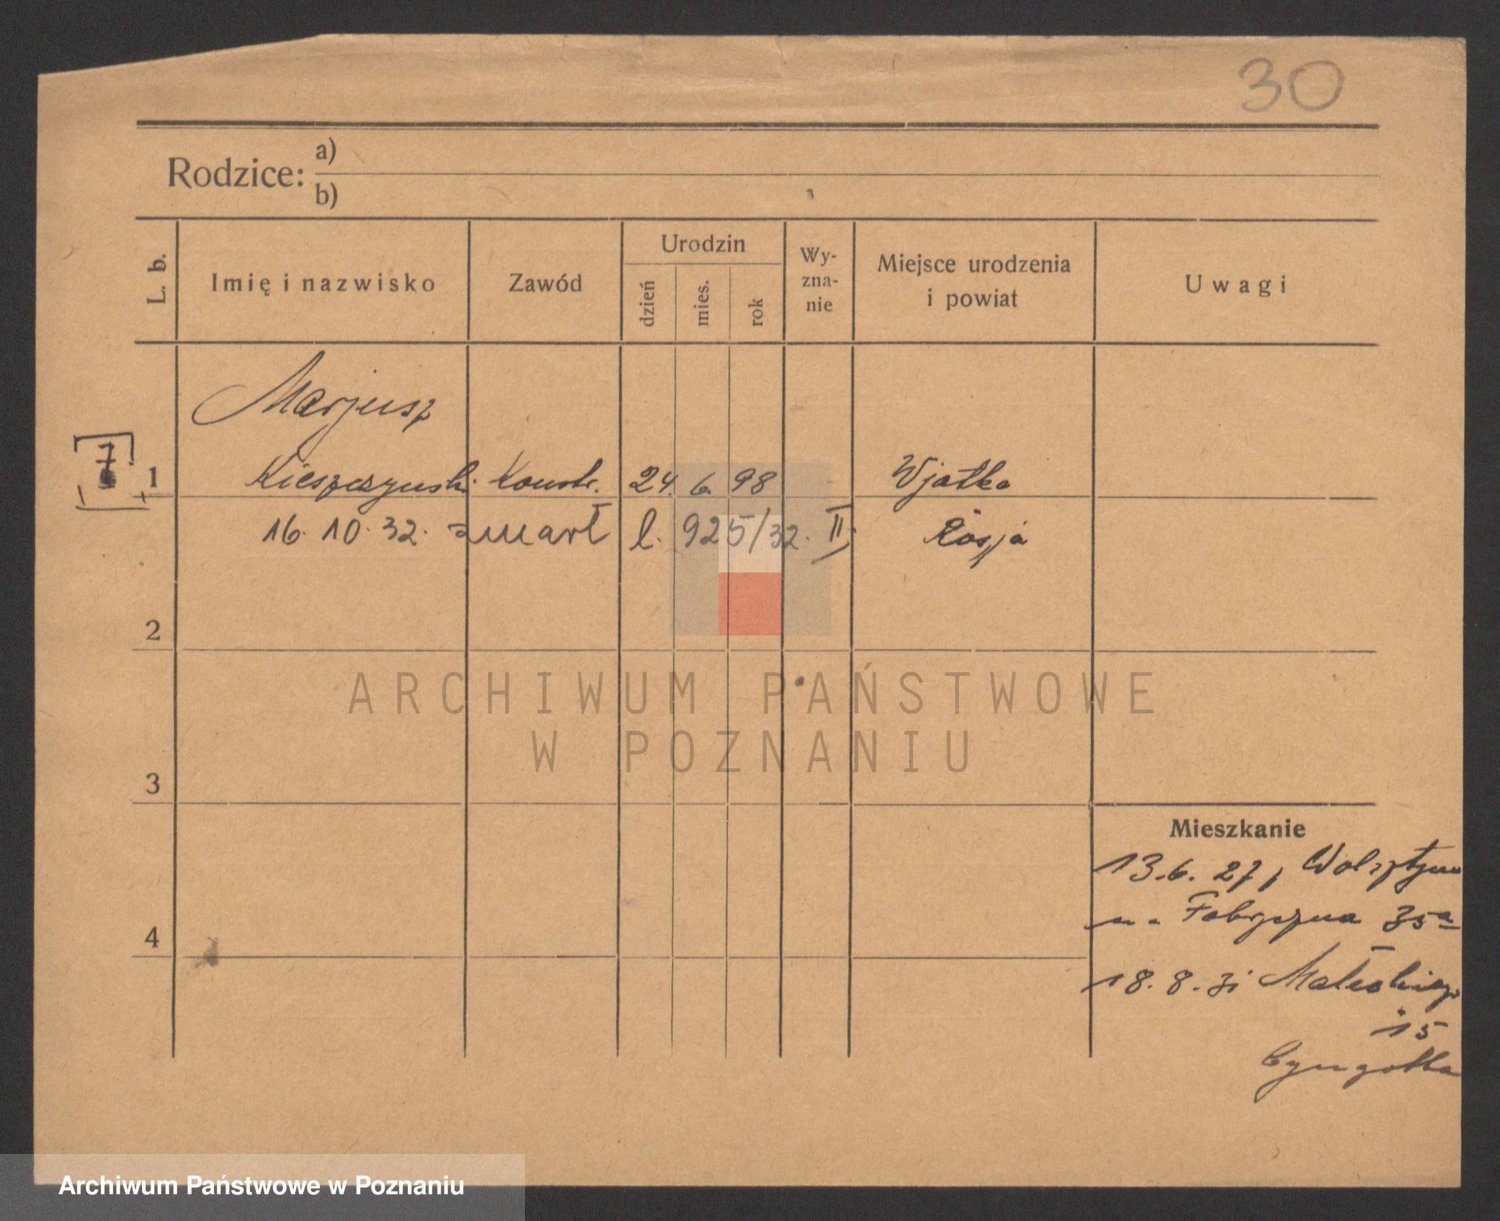 30
Rodzice: a)
b)
L. b.
Imię i nazwisko
Zawód
Urodzin
dzień
mies.
rok
Wy-
zna-
nie
Miejsce urodzenia
i powiat
Uwagi
Marjusz
7
1 Kieszczynski Konstr. 24. 6. 98 Wjatka
16. 10. 32. zmarł l. 925/32. II. Rosja
2
3
4
Mieszkanie
13.6.27, Wolsztyna
Fabryczna 35a
18.8.31 Małeckiego
15
ARCHIWUM PAŃSTWOWE
W POZNANIU
Archiwum Państwowe w Poznaniu